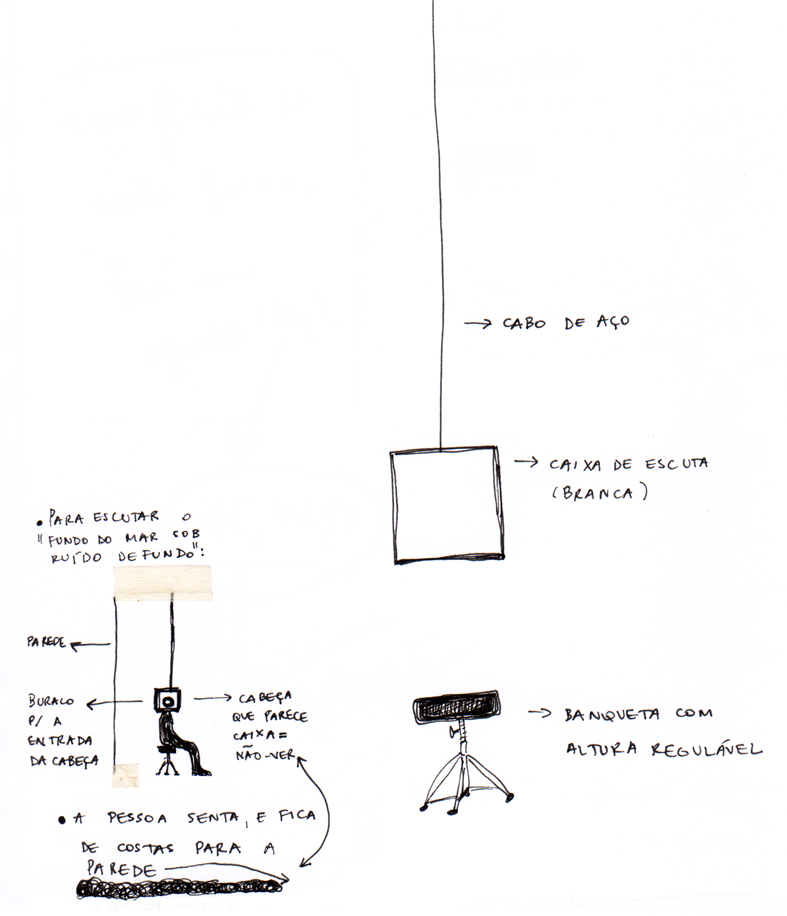 → CABO DE AÇO
→ CAIXA DE ESCUTA
(BRANCA)
• PARA ESCUTAR O
"FUNDO DO MAR SOB
RUÍDO DE FUNDO":
PAREDE ←
BURACO
P/ A
ENTRADA
DA CABEÇA
→ CABEÇA
QUE PARECE
CAIXA =
NÃO-VER
→ BANQUETA COM
ALTURA REGULÁVEL
• A PESSOA SENTA, E FICA
DE COSTAS PARA A
PAREDE